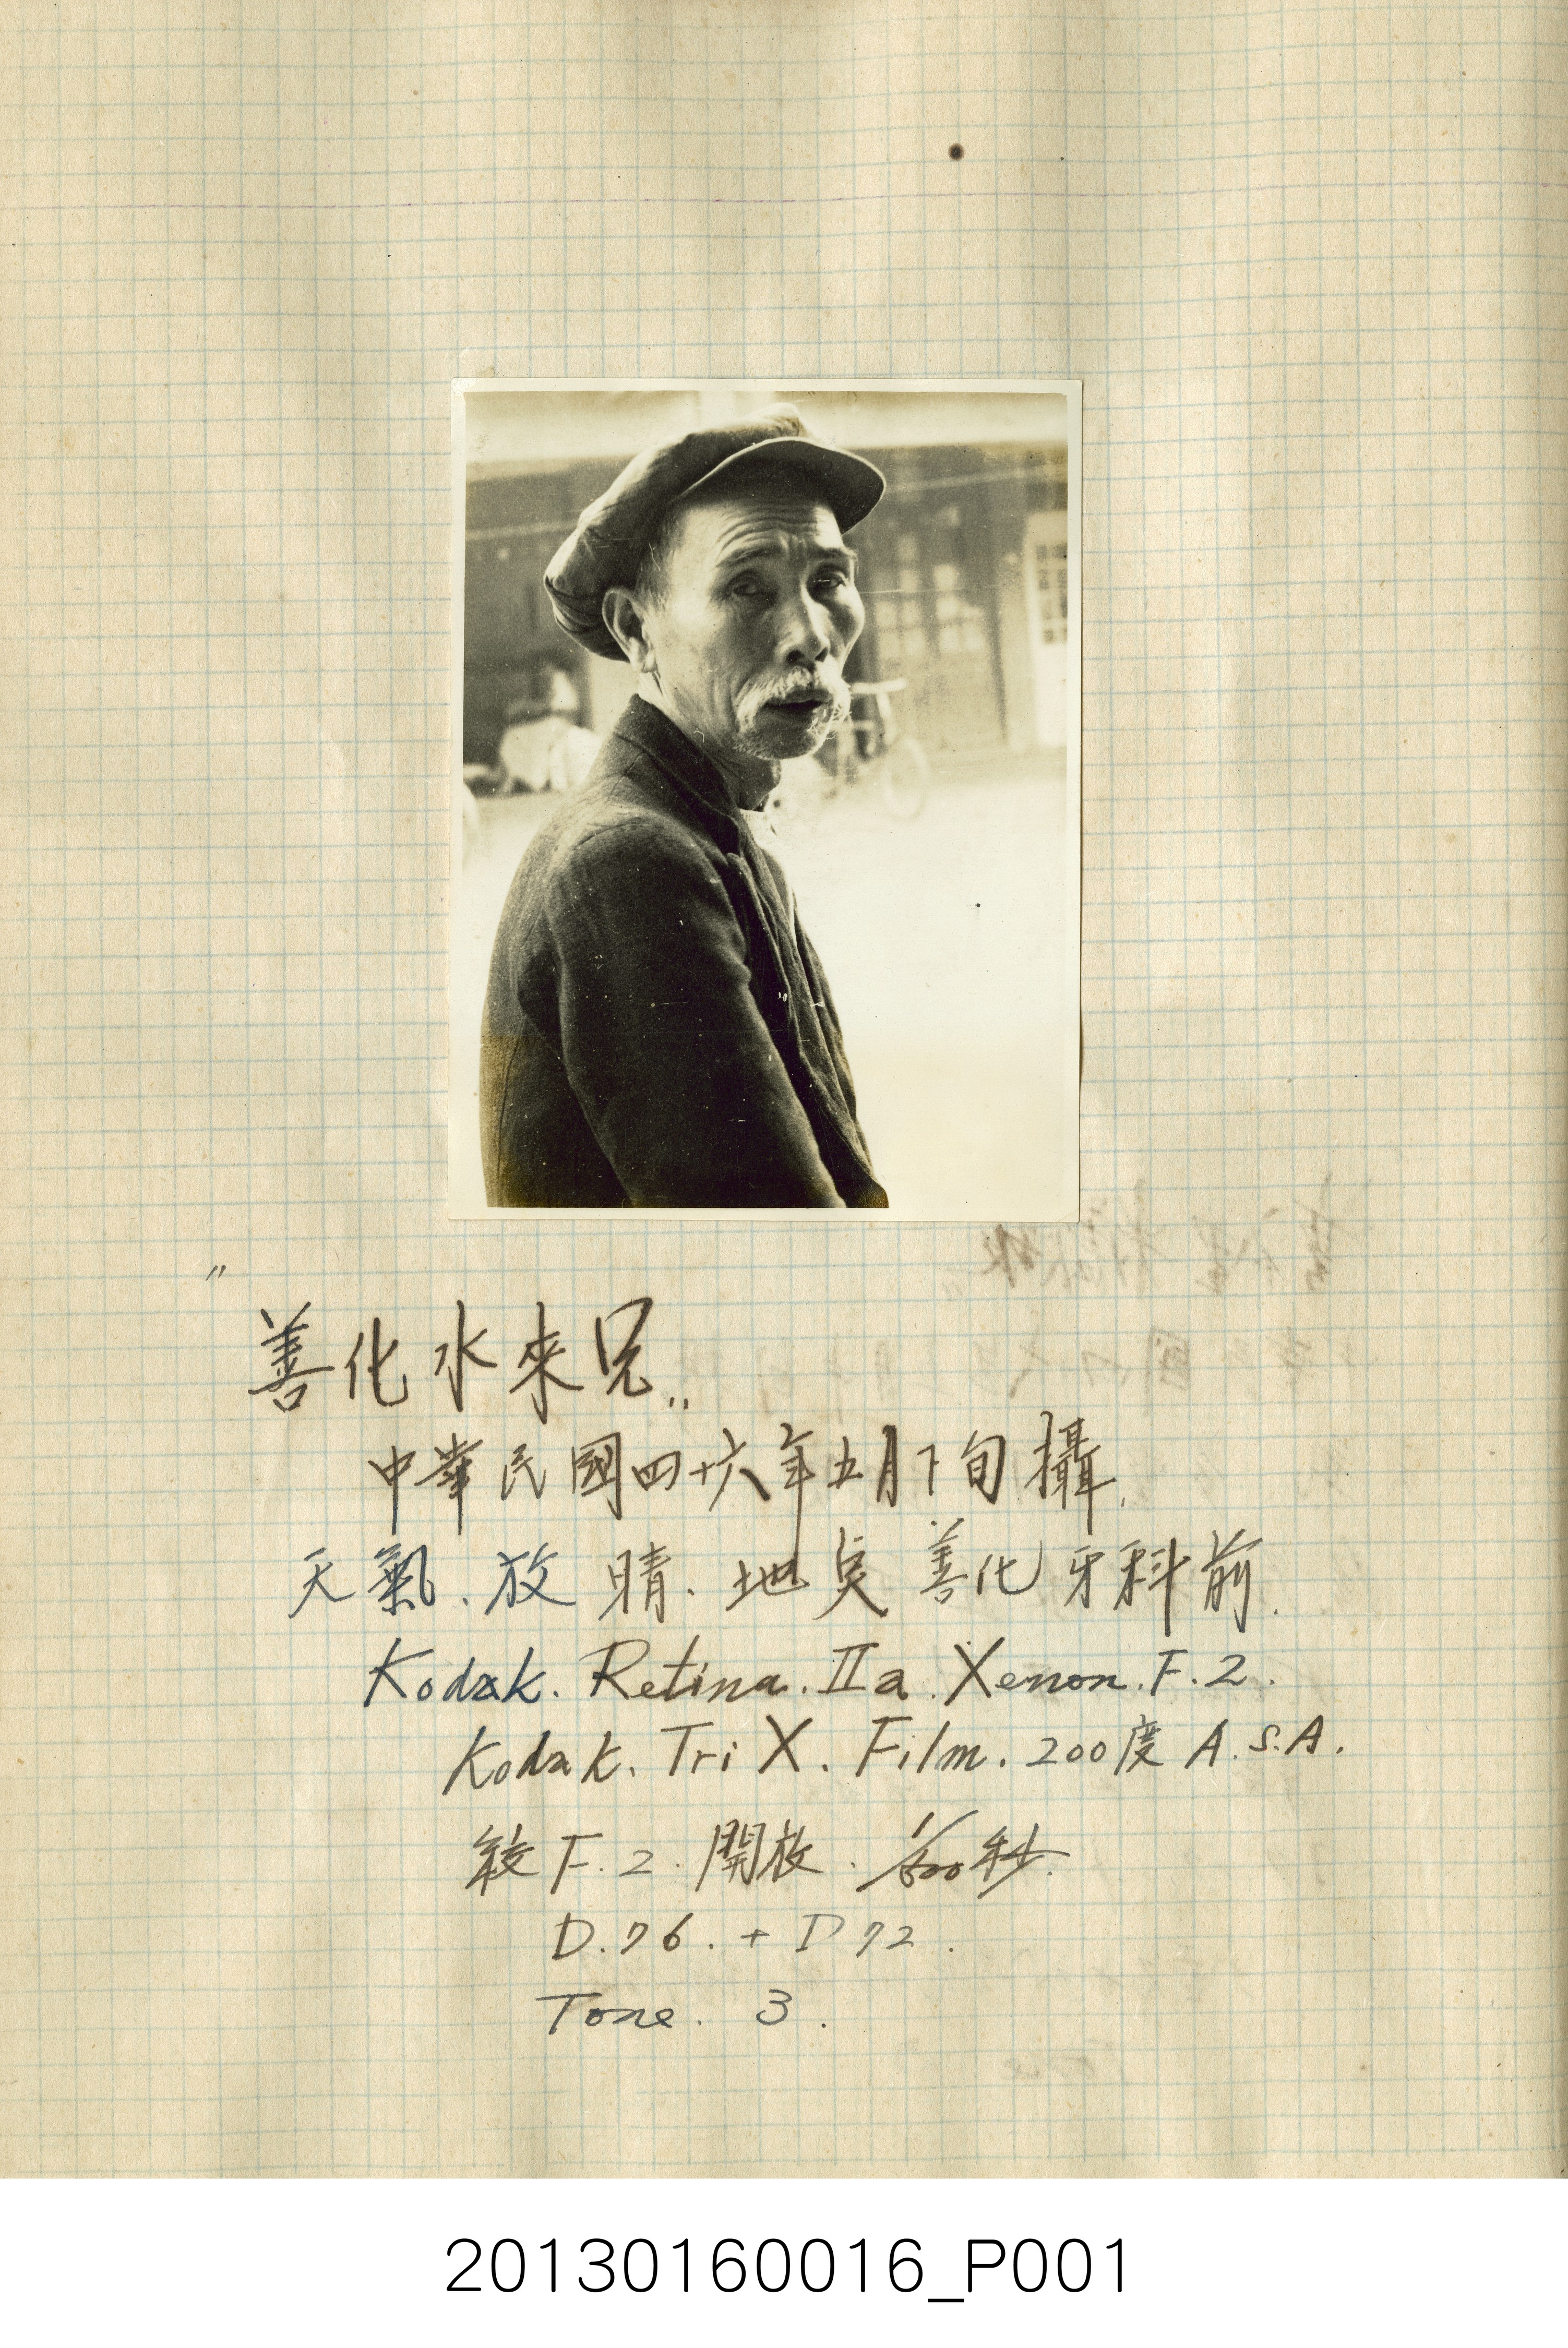 "善化水來兄"
中華民國四十六年五月下旬攝.
天氣.放晴.地点善化牙科前.
Kodak. Retina. IIa. Xenon. F. 2.
Kodak. Tri X. Film. 200度 A.S.A.
絞 F. 2. 開放. 秒.
D.76. + D72.
Tone. 3.
20130160016_P001